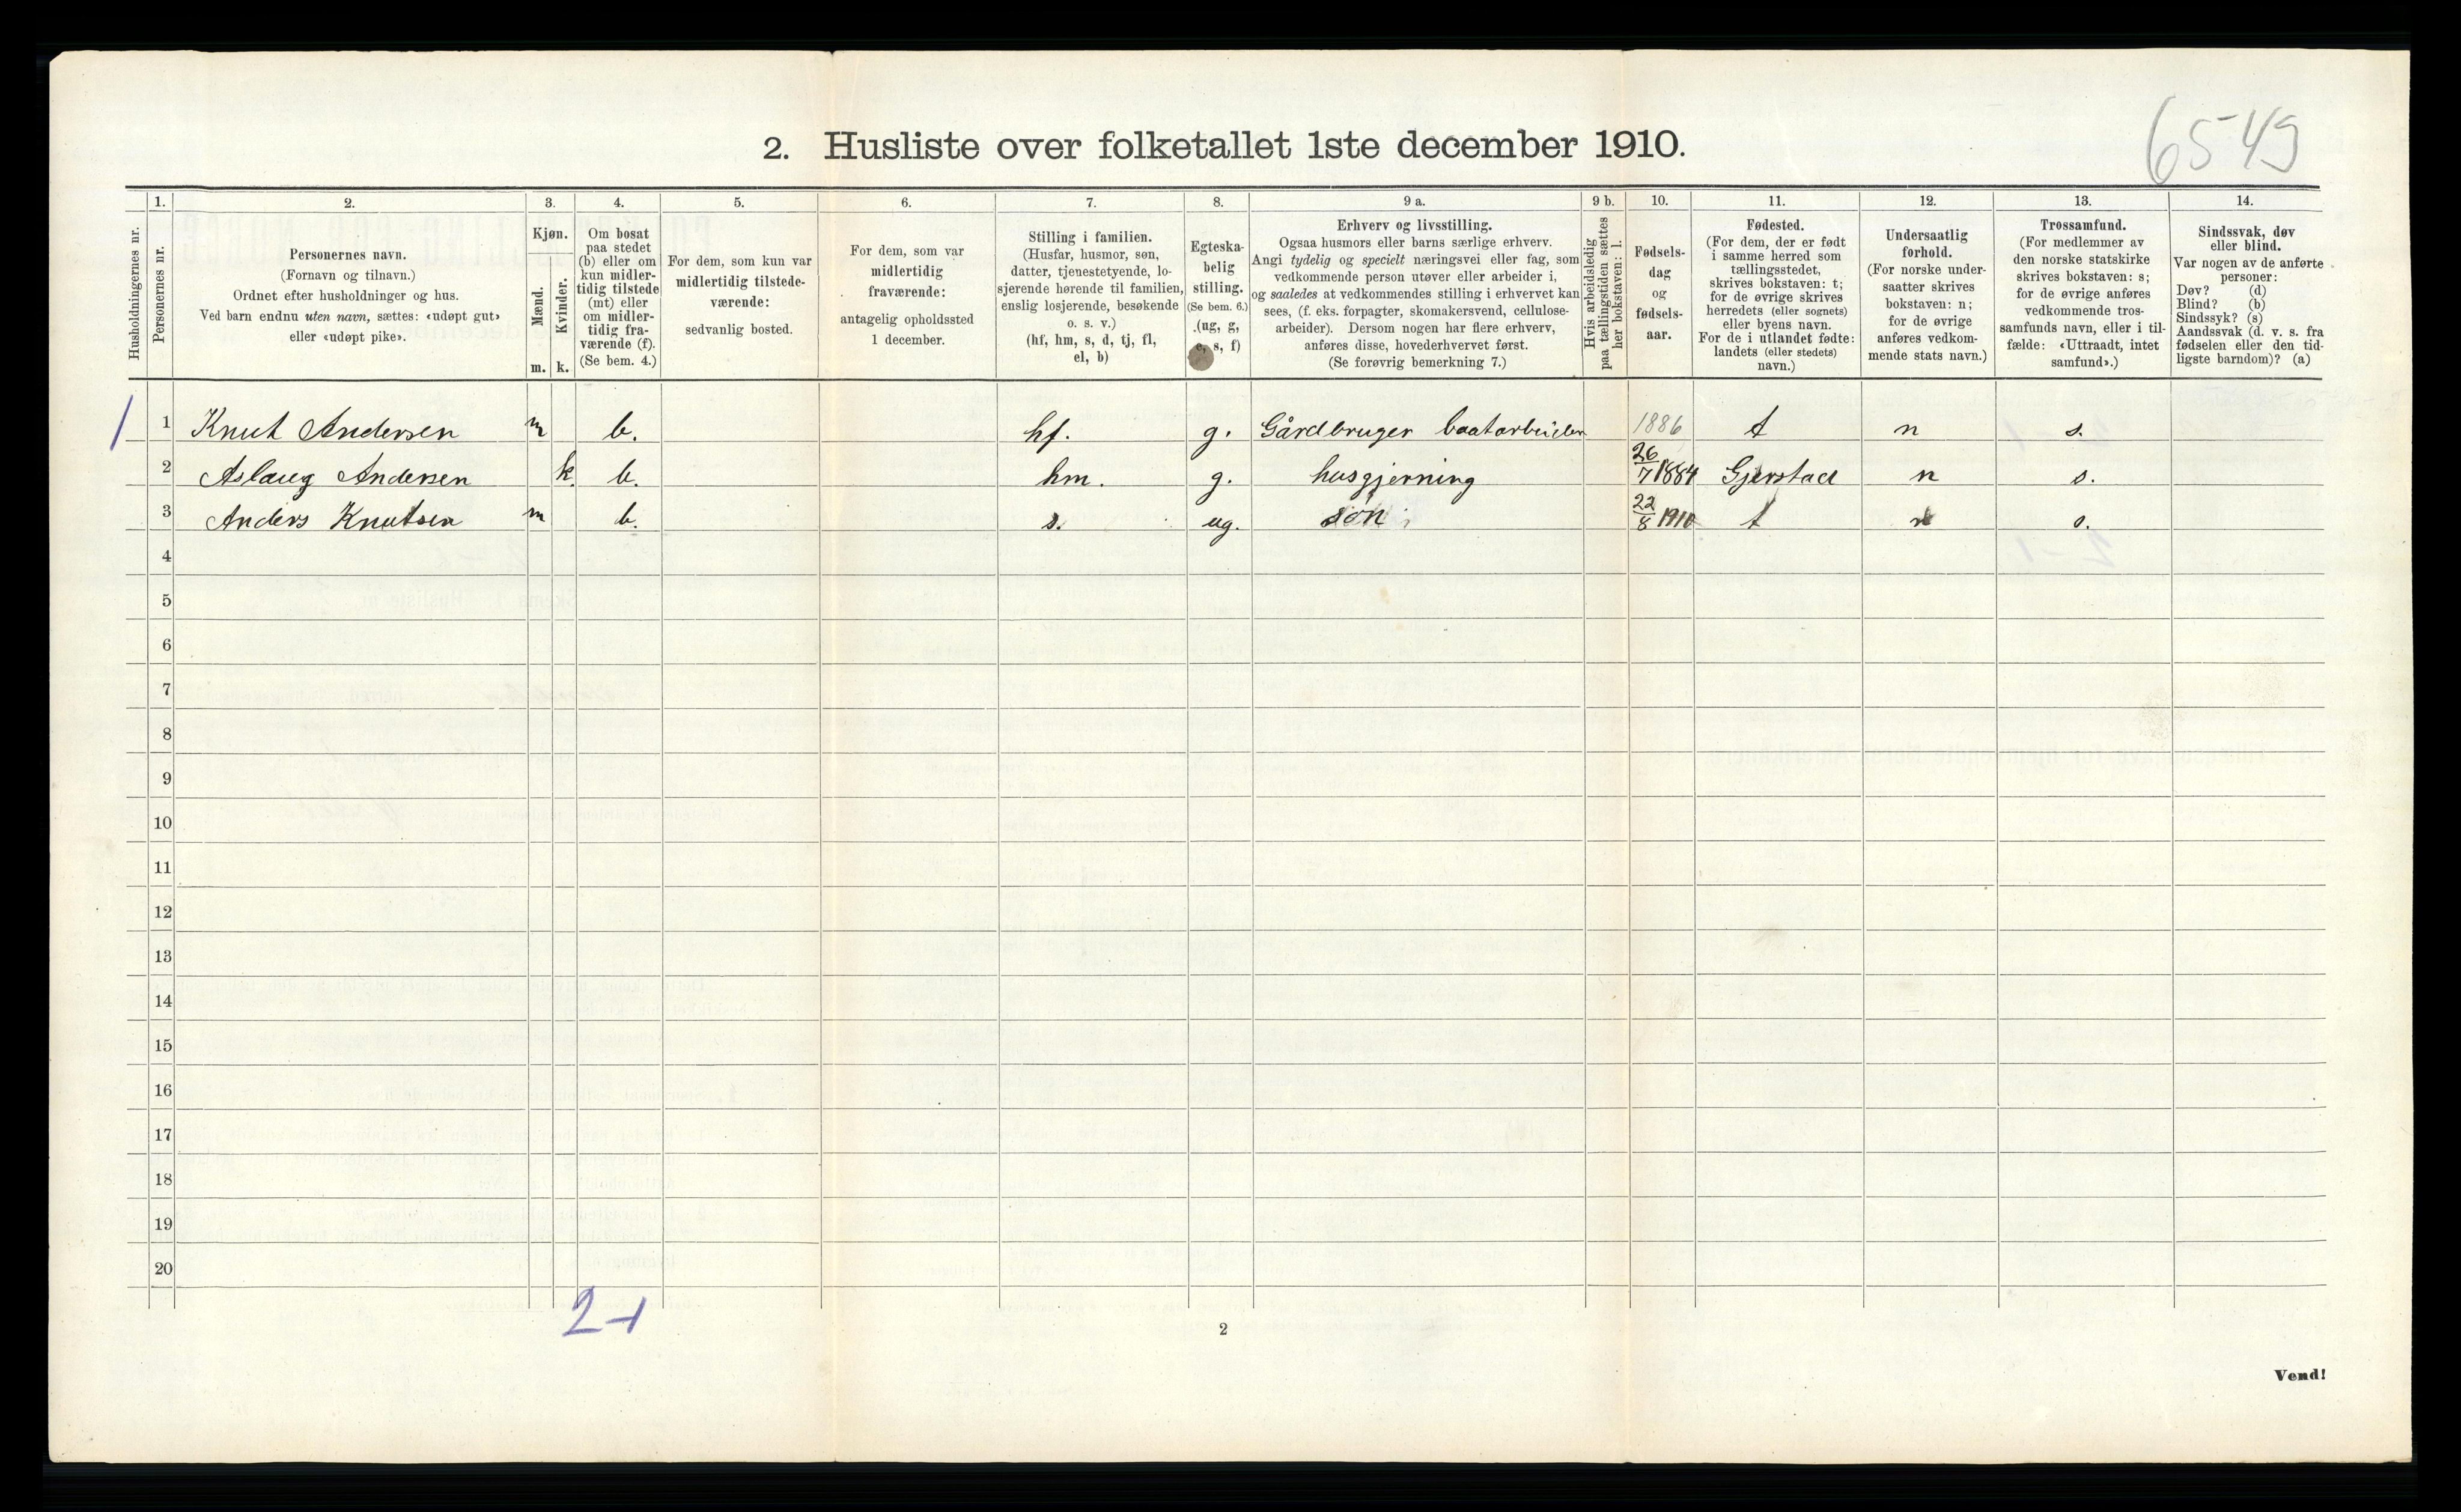 6549
2. Husliste over folketallet 1ste december 1910.
Husholdningernes nr.
1.
Personernes nr.
2.
Personernes navn.
(Fornavn og tilnavn.)
Ordnet efter husholdninger og hus.
Ved barn endnu uten navn, sættes: «udøpt gut»
eller «udøpt pike».
3.
Kjøn.
Mænd.
Kvinder.
m. k.
4.
Om bosat
paa stedet
(b) eller om
kun midler-
tidig tilstede
(mt) eller
om midler-
tidig fra-
værende (f).
(Se bem. 4.)
5.
For dem, som kun var
midlertidig tilstede-
værende:
sedvanlig bosted.
6.
For dem, som var
midlertidig
fraværende:
antagelig opholdssted
1 december.
7.
Stilling i familien.
(Husfar, husmor, søn,
datter, tjenestetyende, lo-
sjerende hørende til familien,
enslig losjerende, besøkende
o. s. v.)
(hf, hm, s, d, tj, fl,
el, b)
8.
Egteska-
belig
stilling.
(Se bem. 6.)
(ug, g,
e, s, f)
9 a.
Erhverv og livsstilling.
Ogsaa husmors eller barns særlige erhverv.
Angi tydelig og specielt næringsvei eller fag, som
vedkommende person utøver eller arbeider i,
og saaledes at vedkommendes stilling i erhvervet kan
sees, (f. eks. forpagter, skomakersvend, cellulose-
arbeider). Dersom nogen har flere erhverv,
anføres disse, hovederhvervet først.
(Se forøvrig bemerkning 7.)
9 b.
Hvis arbeidsledig
paa tællingstiden sættes
her bokstaven: l.
10.
Fødsels-
dag
og
fødsels-
aar.
11.
Fødested.
(For dem, der er født
i samme herred som
tællingsstedet,
skrives bokstaven: t;
for de øvrige skrives
herredets (eller sognets)
eller byens navn.
For de i utlandet fødte:
landets (eller stedets)
navn.)
12.
Undersaatlig
forhold.
(For norske under-
saatter skrives
bokstaven: n;
for de øvrige
anføres vedkom-
mende stats navn.)
13.
Trossamfund.
(For medlemmer av
den norske statskirke
skrives bokstaven: s;
for de øvrige anføres
vedkommende tros-
samfunds navn, eller i til-
fælde: «Uttraadt, intet
samfund».)
14.
Sindssvak, døv
eller blind.
Var nogen av de anførte
personer:
Døv? (d)
Blind? (b)
Sindssyk? (s)
Aandssvak (d. v. s. fra
fødselen eller den tid-
ligste barndom)? (a)
1 1 Knut Andersen m b. hf. g. Gårdbruger baatarbeider 1886 t n s.
2 Aslaug Andersen k b. hm. g. husgjerning 26/7 1884 Gjerstad n s.
3 Anders Knutsen m b. s. ug. søn 22/8 1910 t n s.
4
5
6
7
8
9
10
11
12
13
14
15
16
17
18
19
20
2-1
2
Vend!